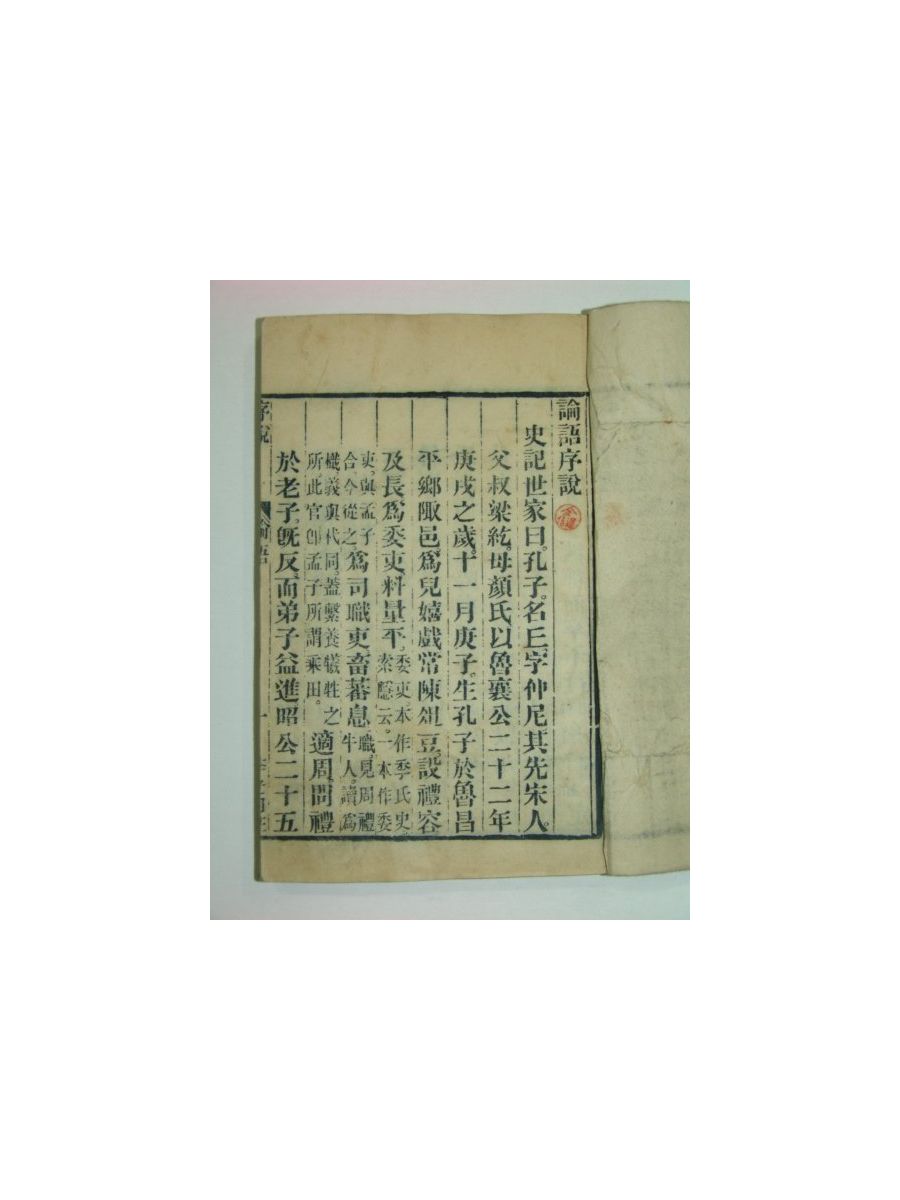 論語序說
史記世家曰。孔子。名丘。字仲尼。其先宋人。
父叔梁紇。母顏氏。以魯襄公二十二年
庚戌之歲。十一月庚子。生孔子於魯昌
平鄉陬邑。爲兒嬉戲。常陳俎豆。設禮容。
及長。爲委吏。料量平。委吏。本作季氏史。索隱云。一本作委
吏。與孟子合。今從之。爲司職吏。畜蕃息。職。見周禮牛人。讀爲
樴。義與杙同。蓋繫養犧牲之所。此官卽孟子所謂乘田。適周。問禮
於老子。旣反。而弟子益進。昭公二十五
序說